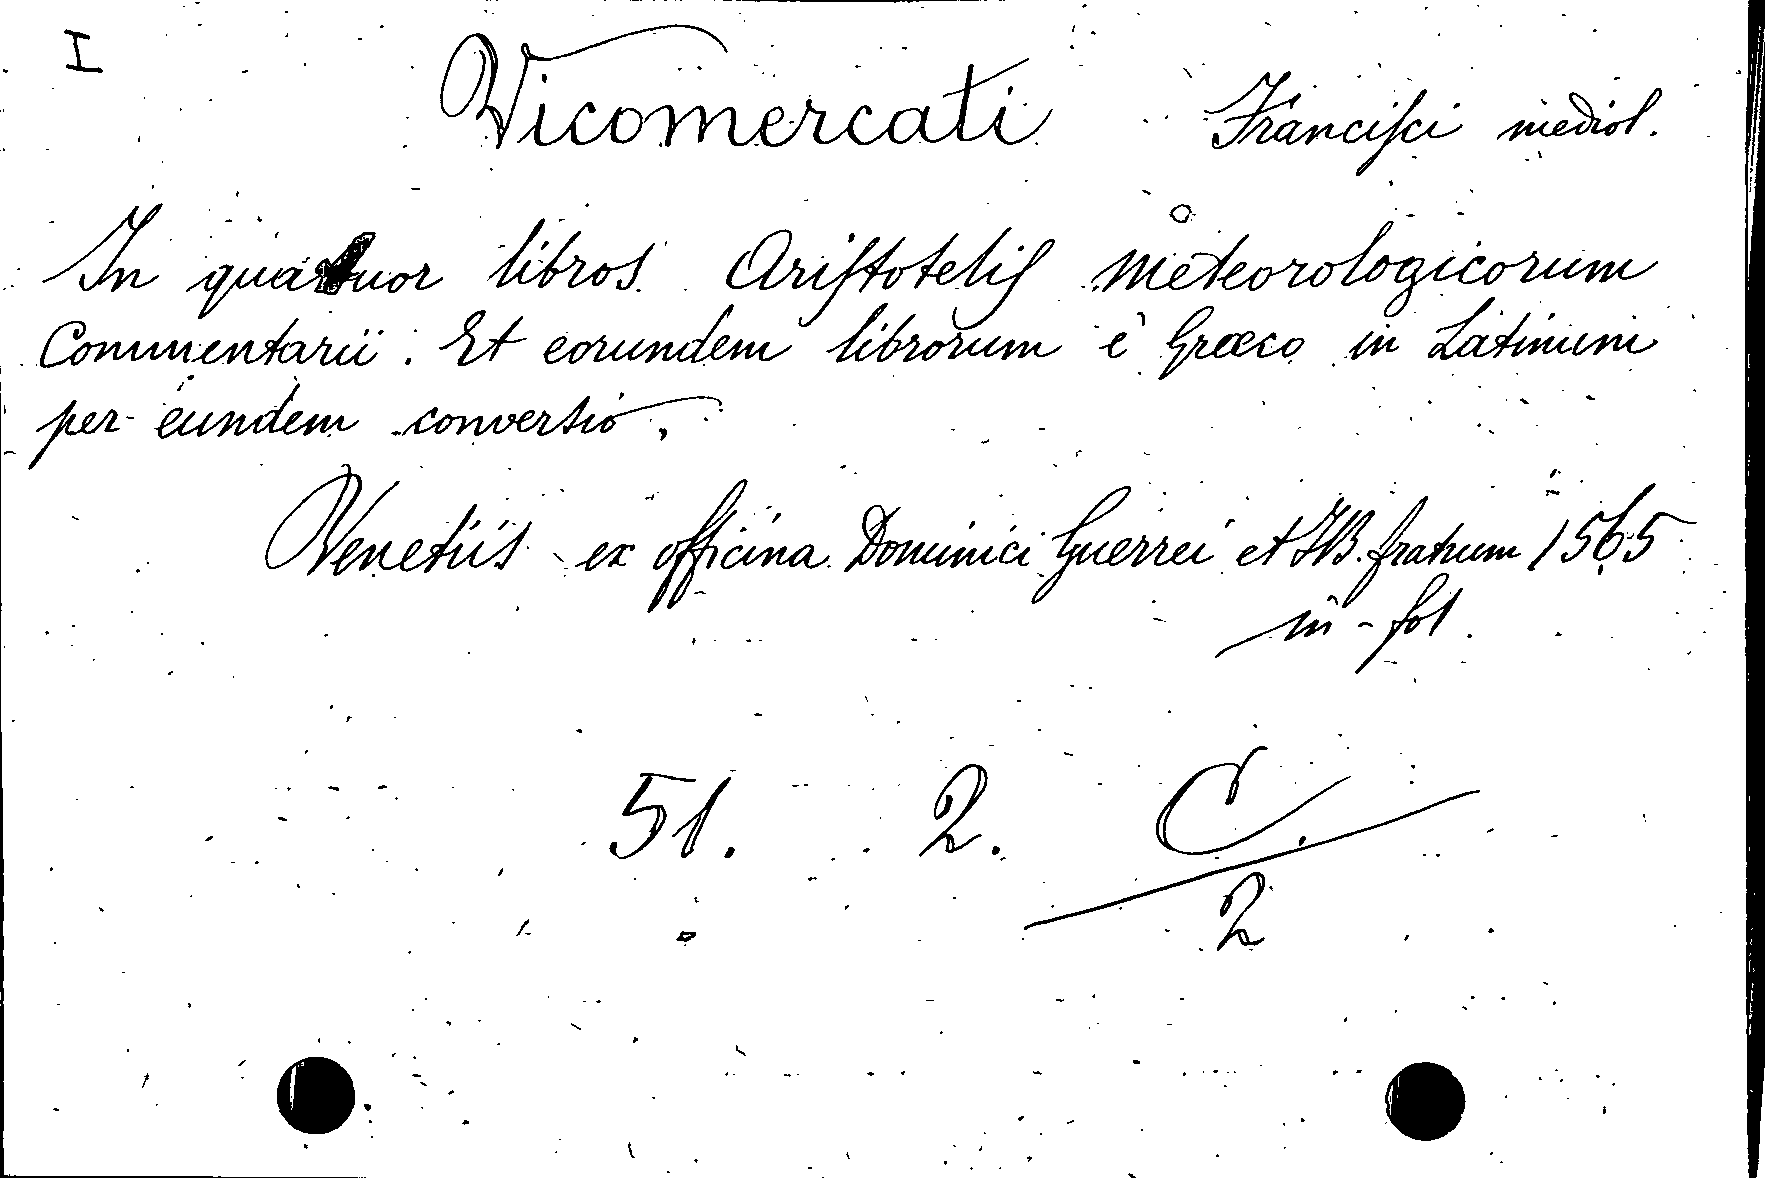 I
Vicomercati Franciſci mediol.
In quatuor libros Ariſtoteliſ meteorologicorum
Commentarii. Et eorundem librorum è Græco in Latinum
per eundem conversio.
Venetiis ex officina Dominici Guerrei et JB. fratrum 1565
in-fol.
51. 2. C.
2